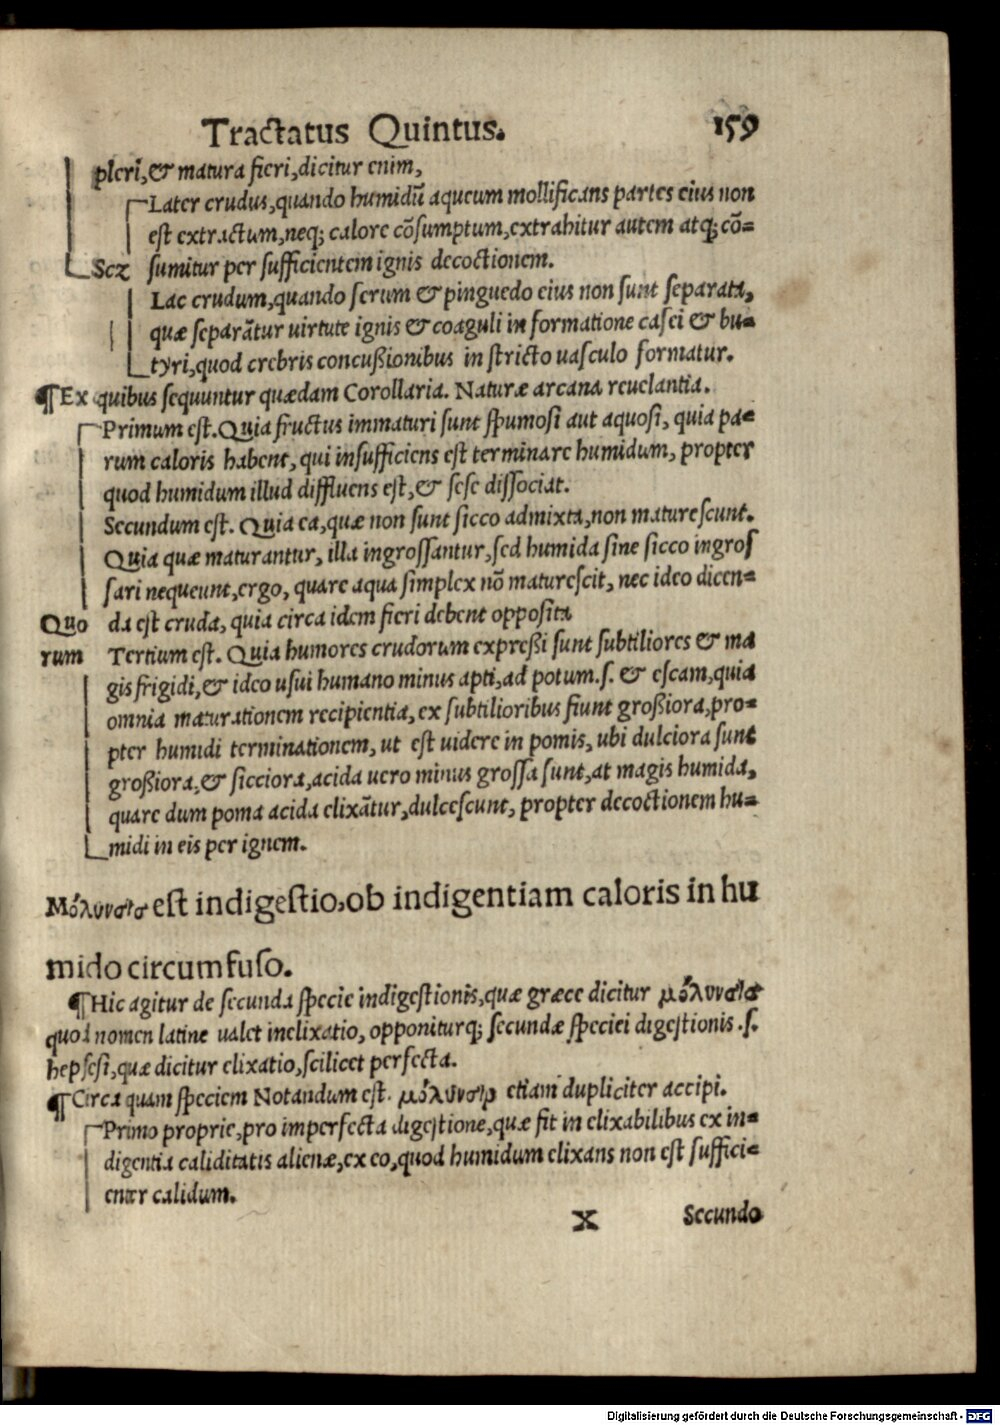 Tractatus Quintus. 159
pleri,& matura fieri,dicitur enim,
Later crudus,quando humidū aqueum mollificans partes eius non
est extractum,neq; calore cōsumptum,extrahitur autem atq; cō=
Scz sumitur per sufficientem ignis decoctionem.
Lac crudum,quando serum & pinguedo eius non sunt separata,
quæ separātur uirtute ignis & coaguli in formatione casei & bu=
tyri,quod crebris concußionibus in stricto uasculo formatur.
¶Ex quibus sequuntur quædam Corollaria. Naturæ arcana reuelantia.
Primum est.Quia fructus immaturi sunt spumosi aut aquosi, quia pa=
rum caloris habent, qui insufficiens est terminare humidum, propter
quod humidum illud diffluens est,& sese dissociat.
Secundum est. Quia ea,quæ non sunt sicco admixta,non maturescunt.
Quia quæ maturantur, illa ingrossantur,sed humida sine sicco ingros
sari nequeunt,ergo, quare aqua simplex nō maturescit, nec ideo dicen=
Quo da est cruda, quia circa idem fieri debent opposita
rum Tertium est. Quia humores crudorum expreßi sunt subtiliores & ma
gis frigidi,& ideo usui humano minus apti,ad potum.s. & escam,quia
omnia maturationem recipientia, ex subtilioribus fiunt großiora,pro=
pter humidi terminationem, ut est uidere in pomis, ubi dulciora sunt
großiora,& sicciora,acida uero minus grossa sunt,at magis humida,
quare dum poma acida elixātur,dulcescunt, propter decoctionem hu=
midi in eis per ignem.
Μόλυνσις est indigestio,ob indigentiam caloris in hu
mido circumfuso.
¶Hic agitur de secunda specie indigestionis,quæ græce dicitur μόλυνσις
quod nomen latine ualet inelixatio, opponiturq; secundæ speciei digestionis .s.
hepsesi,quæ dicitur elixatio,scilicet perfecta.
¶Circa quam speciem Notandum est. μόλυνσιν etiam dupliciter accipi.
Primo proprie,pro imperfecta digestione,quæ fit in elixabilibus ex in=
digentia caliditatis alienæ,ex eo,quod humidum elixans non est suffici=
enter calidum.
X Secundo
Digitalisierung gefördert durch die Deutsche Forschungsgemeinschaft - DFG